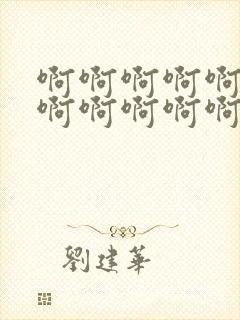 啊啊啊啊啊
啊啊啊啊啊
劉建華